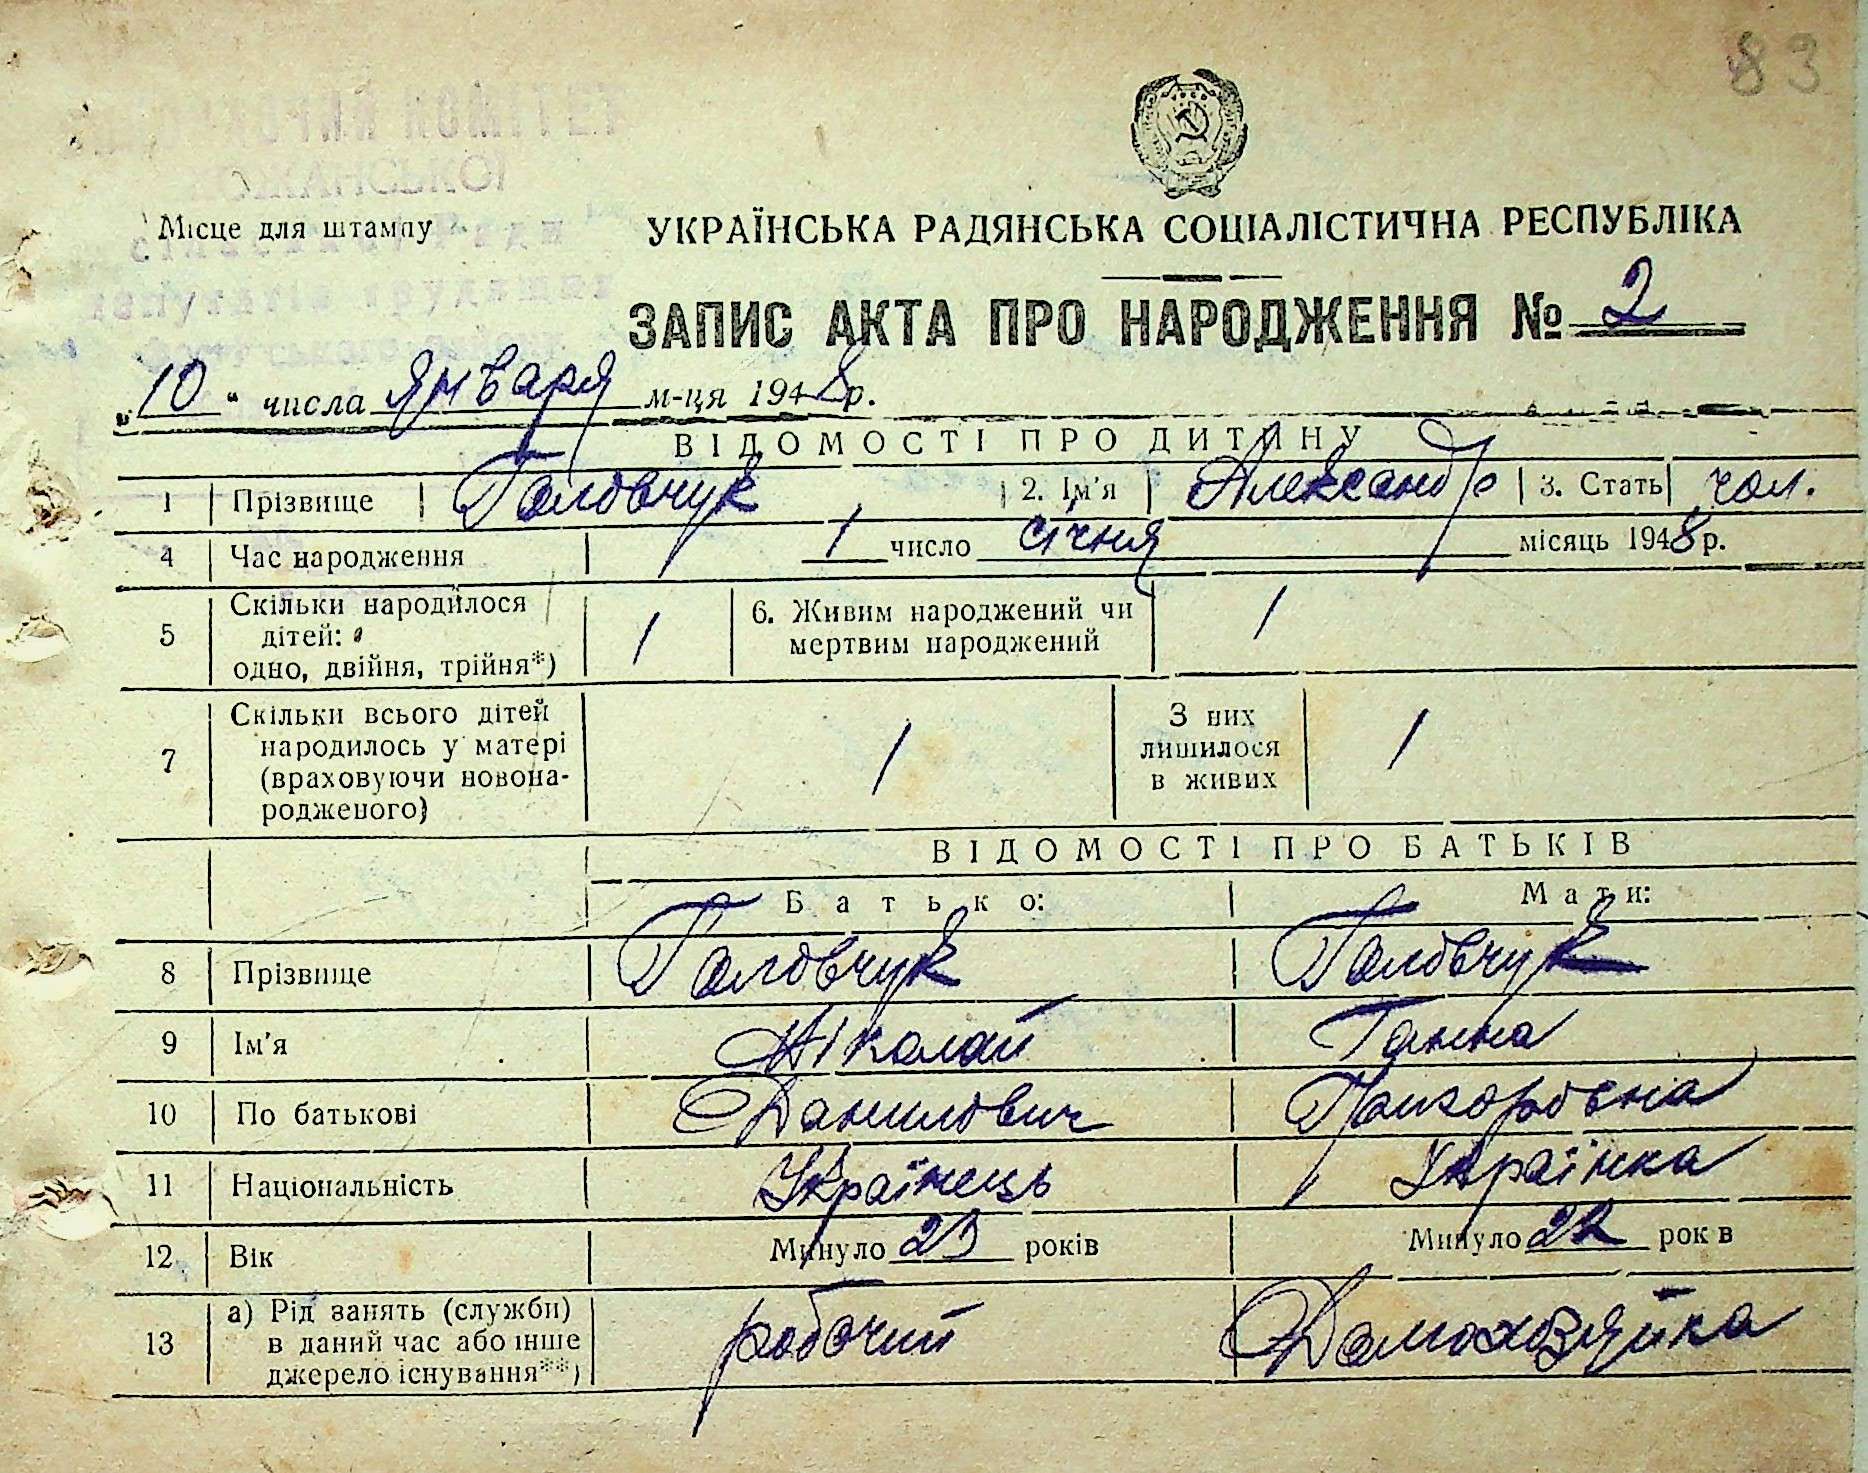 83
КОМІТЕТ
Місце для штампу
УКРАЇНСЬКА РАДЯНСЬКА СОЦІАЛІСТИЧНА РЕСПУБЛІКА
ЗАПИС АКТА ПРО НАРОДЖЕННЯ № 2
„10“ числа января м-ця 1948 р.
ВІДОМОСТІ ПРО ДИТИНУ
1 Прізвище Головчук 2. Ім'я Александр 3. Стать чол.
4 Час народження 1 число січня місяць 1948 р.
5 Скільки народилося дітей: одно, двійня, трійня*) 1 6. Живим народжений чи мертвим народжений 1
7 Скільки всього дітей народилось у матері (враховуючи новонародженого) 1 З них лишилося в живих 1
ВІДОМОСТІ ПРО БАТЬКІВ
Батько: Мати:
8 Прізвище Головчук Головчук
9 Ім'я Ніколай Ганна
10 По батькові Данилович Григоровна
11 Національність Українець Українка
12 Вік Минуло 23 років Минуло 22 рок в
13 а) Рід занять (служби) в даний час або інше джерело існування**) робочий Домохозяйка